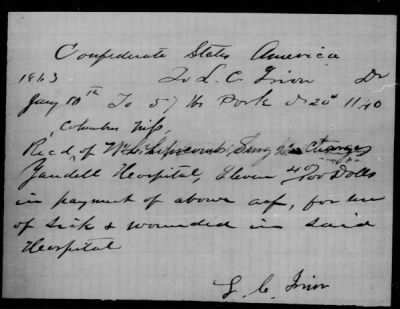 Confederate States America
1863 To L. C. Irion Dr
Jany 10th To 57 lbs Pork @ 20¢ 11 40
Columbus Miss,
Recd, of W. Lipscomb, Surg in Charge
Yandell Hospital, Eleven 40/100 Dolls
in payment of above a/c, for use
of sick & wounded in said
Hospital
L. C. Irion